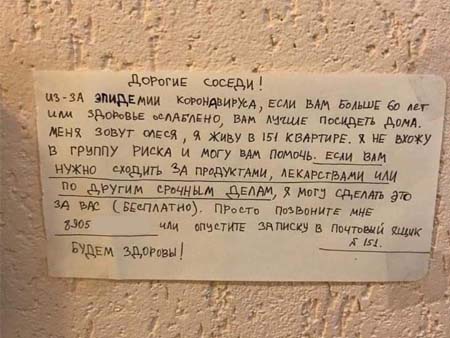 ДОРОГИЕ СОСЕДИ!
ИЗ-ЗА ЭПИДЕМИИ КОРОНАВИРУСА, ЕСЛИ ВАМ БОЛЬШЕ 60 ЛЕТ
ИЛИ ЗДОРОВЬЕ ОСЛАБЛЕНО, ВАМ ЛУЧШЕ ПОСИДЕТЬ ДОМА.
МЕНЯ ЗОВУТ ОЛЕСЯ, Я ЖИВУ В 151 КВАРТИРЕ. Я НЕ ВХОЖУ
В ГРУППУ РИСКА И МОГУ ВАМ ПОМОЧЬ. ЕСЛИ ВАМ
НУЖНО СХОДИТЬ ЗА ПРОДУКТАМИ, ЛЕКАРСТВАМИ ИЛИ
ПО ДРУГИМ СРОЧНЫМ ДЕЛАМ, Я МОГУ СДЕЛАТЬ ЭТО
ЗА ВАС (БЕСПЛАТНО). ПРОСТО ПОЗВОНИТЕ МНЕ
8905 ИЛИ ОПУСТИТЕ ЗАПИСКУ В ПОЧТОВЫЙ ЯЩИК
№ 151.
БУДЕМ ЗДОРОВЫ!